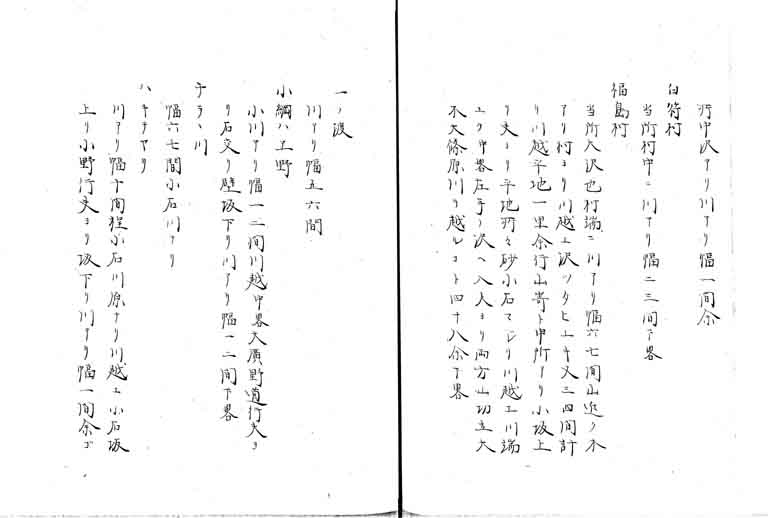 所中沢アリ川アリ幅一間余
白符村
当所村中ニ川アリ幅二三間下畧
福島村
当所入沢也村端ニ川アリ幅六七間山近ノ木
アリ村ヨリ川越エ沢ツタヒ上キ又三四間計
リ川越平地一里余行山嵜ト申所アリ小坂上
リ夫ヨリ平地所々砂小石マジリ川越エ川端
エリ中畧左手ノ沢ヘ入夫ヨリ両方山切立大
木大篠原川ヲ越ルコト四十八余下畧
一ノ渡
川アリ幅五六間
小綱ハエ野
小川アリ幅一二間川越中畧大広野道行夫ヨ
リ石交リ壁坂下リ川アリ幅一二間下畧
チラヽ川
幅六七間小石川アリ
ハキチヤリ
川アリ幅十間程小石川原ナリ川越エ小石坂
上リ小野行夫ヨリ坂下リ川アリ幅一間余ゴ